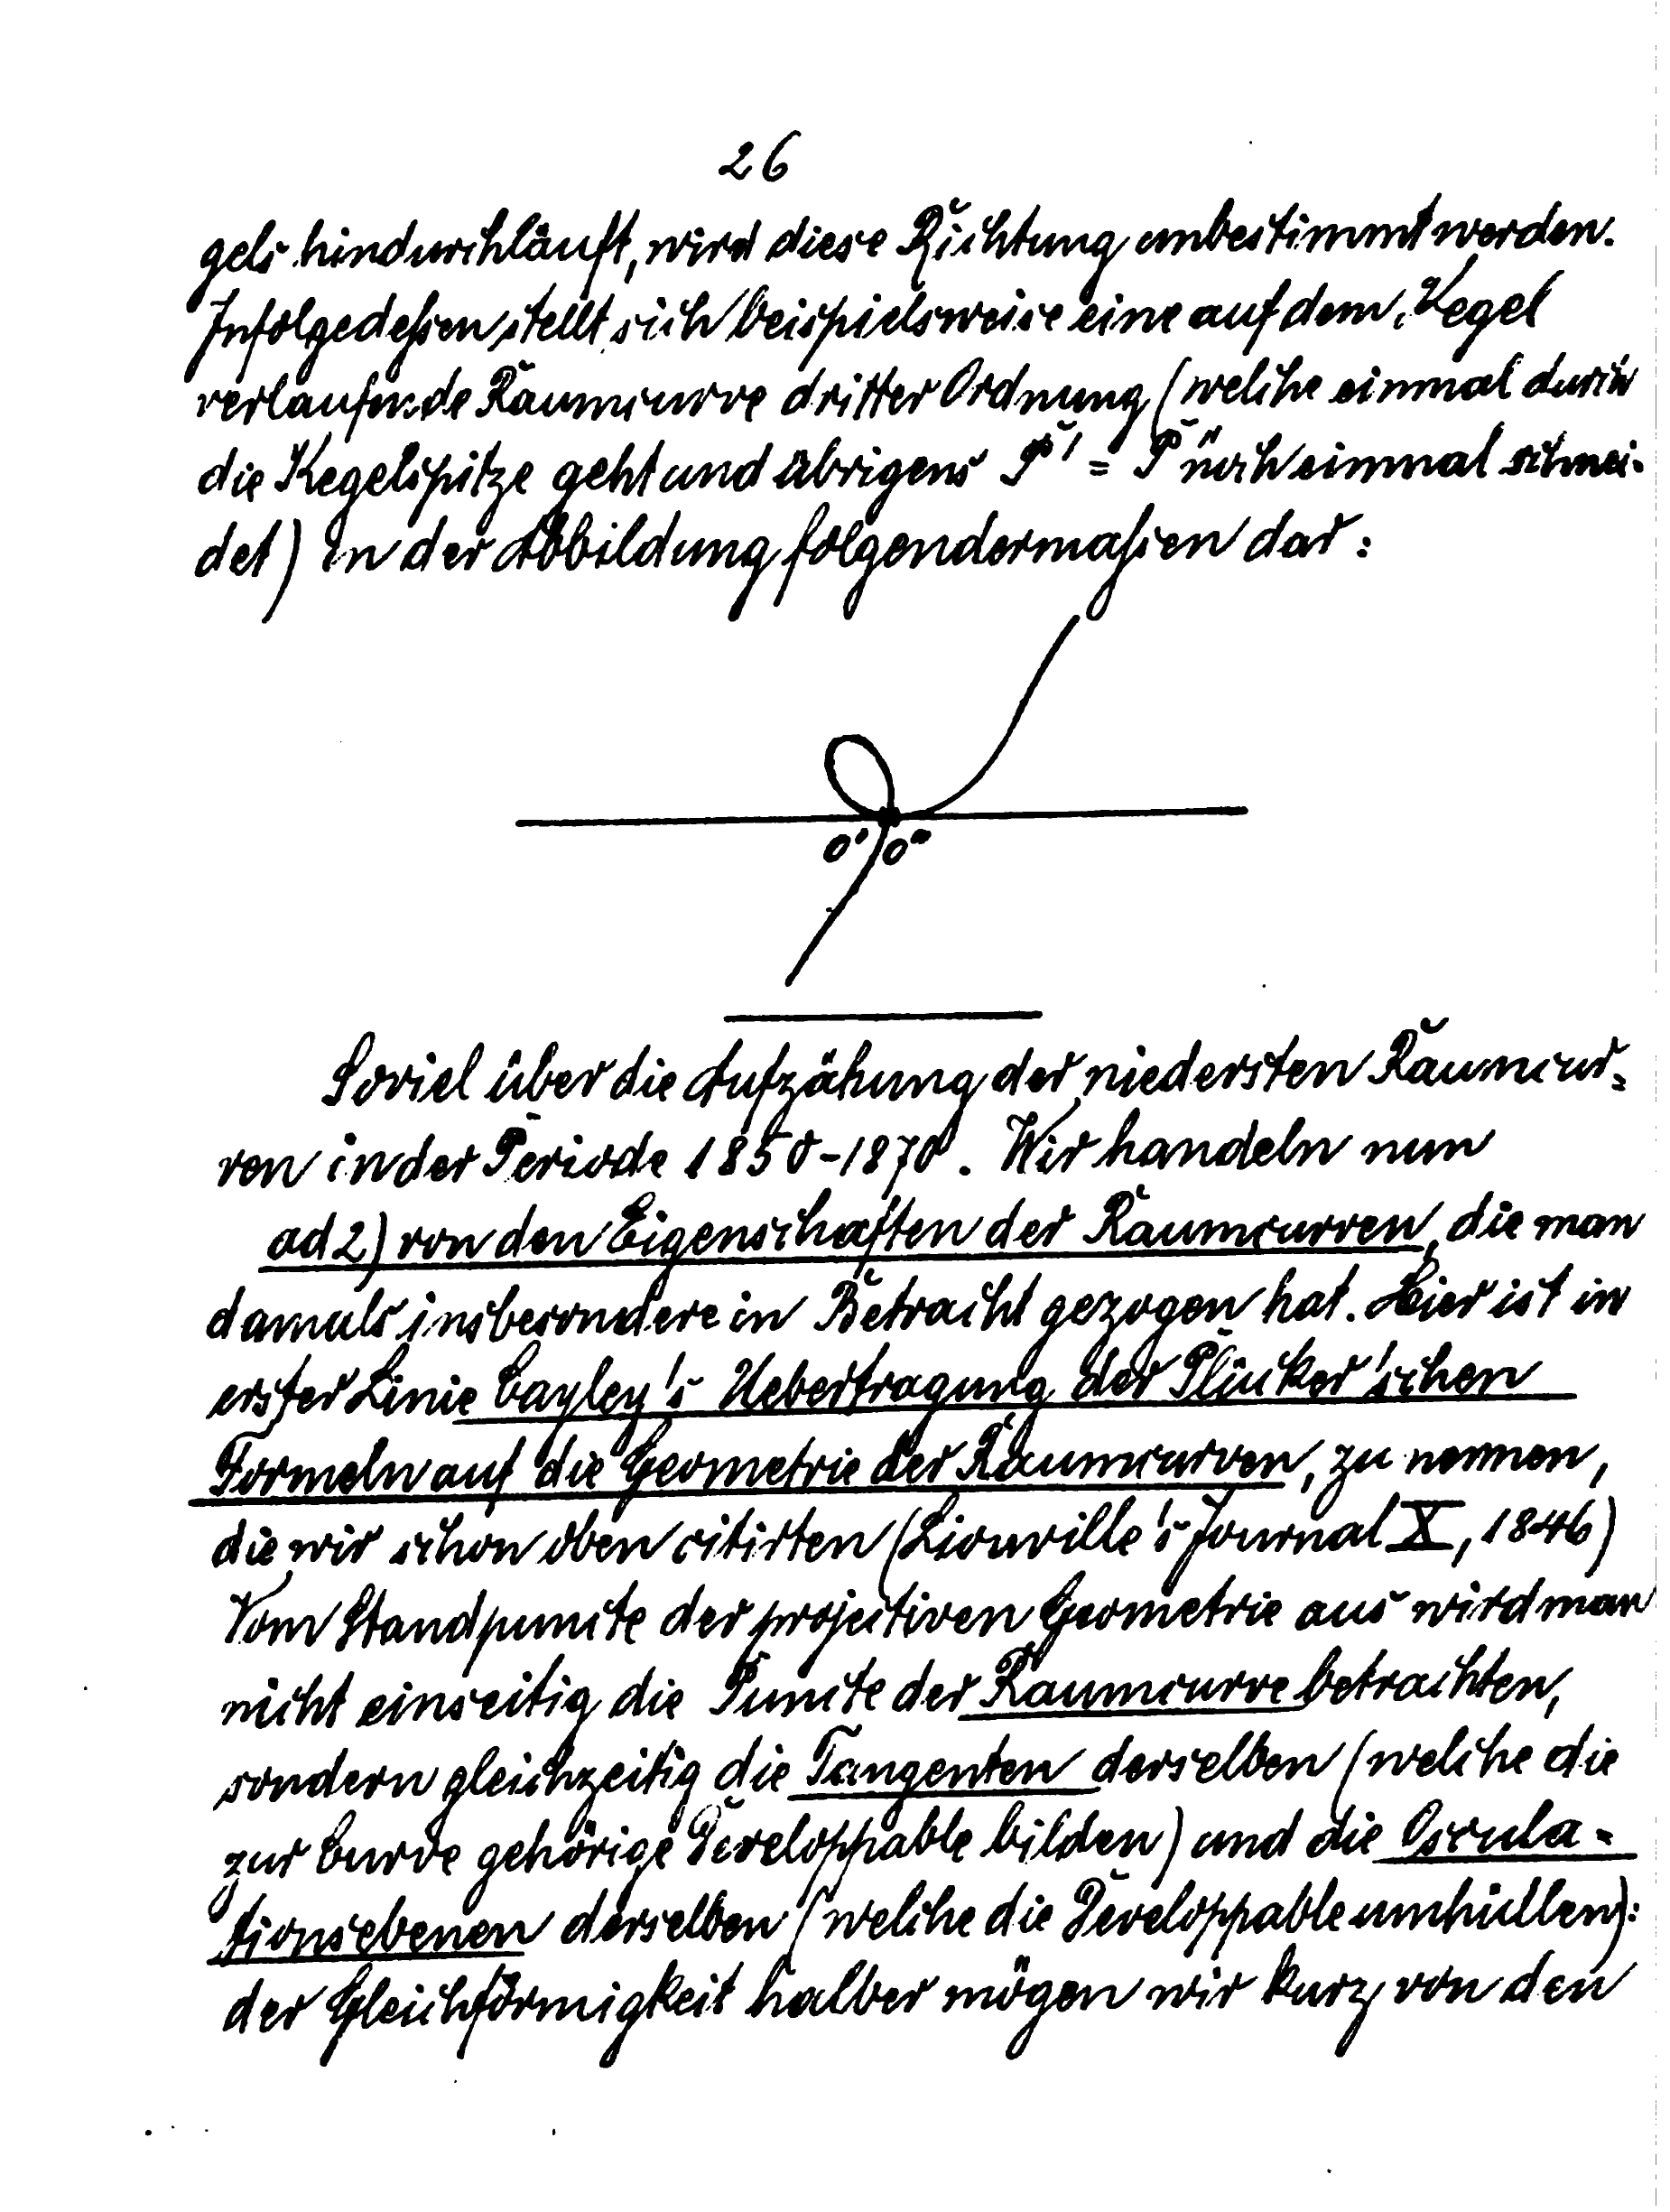 26
gels hindurchläuft, wird diese Richtung unbestimmt werden.
Infolgedessen stellt sich beispielsweise eine auf dem Kegel
verlaufende Raumcurve dritter Ordnung (welche einmal durch
die Kegelspitze geht und übrigens P' = P'' noch einmal schnei-
det) in der Abbildung folgendermassen dar:
O' O''
Soviel über die Aufzählung der niedersten Raumcur-
ven in der Periode 1850-1870. Wir handeln nun
ad 2) von den Eigenschaften der Raumcurven, die man
damals insbesondere in Betracht gezogen hat. Hier ist in
erster Linie Cayley's Uebertragung der Plücker'schen
Formeln auf die Geometrie der Raumcurven, zu nennen,
die wir schon oben citirten (Liouville's Journal X, 1846)
Vom Standpuncte der projectiven Geometrie aus wird man
nicht einseitig die Puncte der Raumcurve betrachten,
sondern gleichzeitig die Tangenten derselben (welche die
zur Curve gehörige Developpable bilden) und die Oscula-
tionsebenen derselben (welche die Developpable umhüllen):
der Gleichförmigkeit halber mögen wir kurz von den